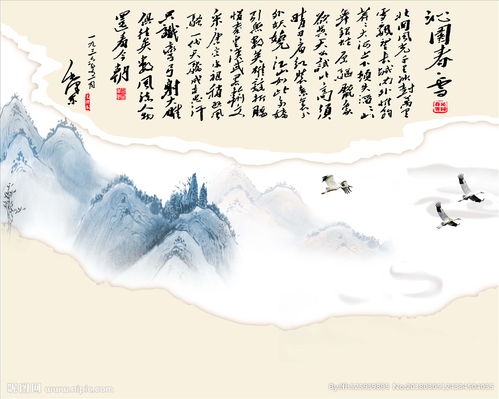 沁园春 雪
北国风光千里冰封万里
雪飘望长城内外惟馀
莽莽大河上下顿失滔滔山
舞银蛇原驰蜡象
欲与天公试比高须
晴日看红装素裹分
外妖娆江山如此多娇
引无数英雄竞折腰
惜秦皇汉武略输文
采唐宗宋祖稍逊风
骚一代天骄成吉思汗
只识弯弓射大雕
俱往矣数风流人物
还看今朝
毛泽东
昵图网 www.nipic.com